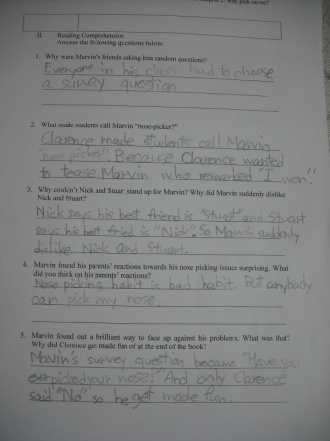 why pick on me?
II. Reading Comprehension
Answer the following questions below.
1. Why were Marvin's friends asking him random questions?
Everyone in his class had to choose
a survey question
2. What made students call Marvin "nose-picker?"
Clarence made students call Marvin
"nose picker". Because Clarence wanted
to tease Marvin who remarked "I won!"
3. Why couldn't Nick and Stuart stand up for Marvin? Why did Marvin suddenly dislike
Nick and Stuart?
Nick says his best friend is "Stuart" and Stuart
says his best fried is "Nick". So Marvin suddenly
dislike Nick and Stuart.
4. Marvin found his parents' reactions towards his nose picking issues surprising. What
did you think on his parents' reactions?
Nose picking habit is bad habit. But anybody
can pick my nose.
5. Marvin found out a brilliant way to face up against his problems. What was that?
Why did Clarence got made fun of at the end of the book?
Mavin's survey question became "Have you
ever picked your nose?" And only Clarence
said "No" so he get made fun.